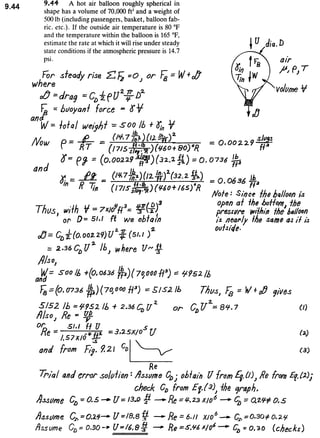 9.44
9.44 A hot air balloon roughly spherical in
shape has a volume of 70,000 ft³ and a weight of
500 lb (including passengers, basket, balloon fab-
ric. etc.). If the outside air temperature is 80 °F
and the temperature within the balloon is 165 °F,
estimate the rate at which it will rise under steady
state conditions if the atmospheric pressure is 14.7
psi.
U dia. D
F_B
air
γin
μ, ρ, T
Tin
W
volume ∀
𝒟
For steady rise ΣF_z = 0, or F_B = W + 𝒟
where
𝒟 = drag = C_D ½ρU² π/4 D²
F_B = buoyant force = γ∀
and
W = total weight = 500 lb + γin ∀
Now ρ = p/RT = (14.7 lb/in²)(12 in/ft)² / (1715 ft·lb/slug·°R)(460+80)°R = 0.00229 slugs/ft³
γ = ρg = (0.00229 slug/ft³)(32.2 ft/s²) = 0.0736 lb/ft³
and
γin = pg/(R Tin) = (14.7 lb/in²)(12 in/ft)²(32.2 ft/s²) / (1715 ft·lb/slug·°R)(460+165)°R = 0.0636 lb/ft³
Note: Since the balloon is
open at the bottom, the
pressure within the balloon
is nearly the same as it is
outside.
Thus, with ∀ = 7×10⁴ ft³ = 4π/3 (D/2)³
or D = 51.1 ft we obtain
𝒟 = C_D ½(0.00229)U² π/4 (51.1)²
= 2.36 C_D U² lb, where U ~ ft/s
Also,
W = 500 lb + (0.0636 lb/ft³)(70,000 ft³) = 4952 lb
and
F_B = (0.0736 lb/ft³)(70,000 ft³) = 5152 lb Thus, F_B = W + 𝒟 gives
5152 lb = 4952 lb + 2.36 C_D U² or C_D U² = 84.7 (1)
Also, Re = UD/ν
or
Re = 51.1 ft U / 1.57×10⁻⁴ ft²/s = 3.25×10⁵ U (2)
and from Fig. 9.21 C_D (3)
Re
Trial and error solution: Assume C_D; obtain U from Eq.(1), Re from Eq.(2);
check C_D from Eq.(3), the graph.
Assume C_D = 0.5 → U = 13.0 ft/s → Re = 4.23×10⁶ → C_D = 0.29 ≠ 0.5
Assume C_D = 0.24 → U = 18.8 ft/s → Re = 6.11×10⁶ → C_D = 0.30 ≠ 0.24
Assume C_D = 0.30 → U = 16.8 ft/s → Re = 5.46×10⁶ → C_D = 0.30 (checks)